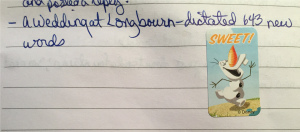 and posted a reply.
- a Wedding at Longbourn - dictated 643 new
words
SWEET!